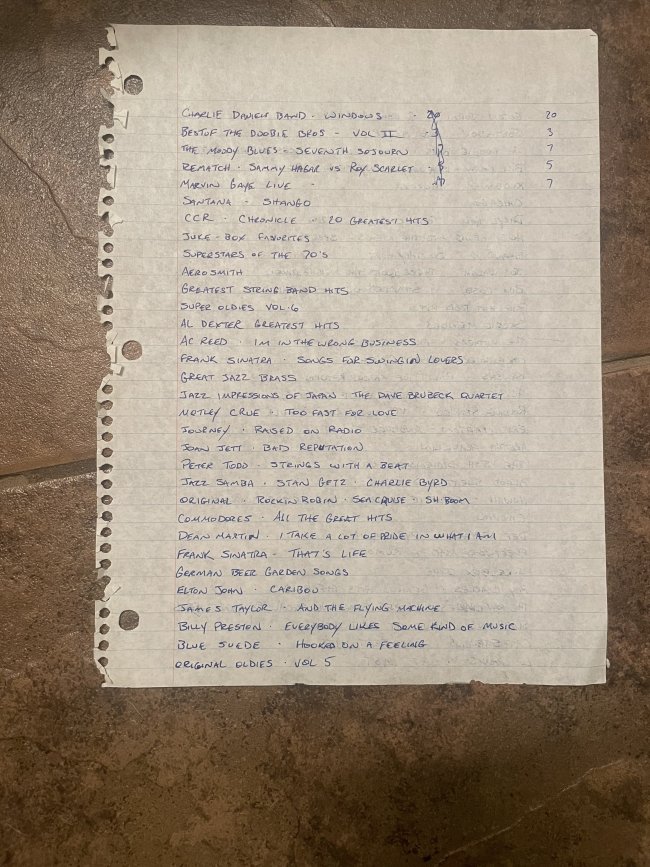 CHARLIE DANIELS BAND - WINDOWS - 20 20
BEST OF THE DOOBIE BROS - VOL II - 3 3
THE MOODY BLUES - SEVENTH SOJOURN 7
REMATCH - SAMMY HAGAR VS ROY SCARLET - 5 5
MARVIN GAYE LIVE - 7
SANTANA - SHANGO
CCR - CHRONICLE - 20 GREATEST HITS
JUKE-BOX FAVORITES
SUPERSTARS OF THE 70'S
AEROSMITH
GREATEST STRING BAND HITS
SUPER OLDIES VOL-6
AL DEXTER GREATEST HITS
AC REED - IM IN THE WRONG BUSINESS
FRANK SINATRA - SONGS FOR SWINGIN LOVERS
GREAT JAZZ BRASS
JAZZ IMPRESSIONS OF JAPAN - THE DAVE BRUBECK QUARTET
MOTLEY CRUE - TOO FAST FOR LOVE
JOURNEY - RAISED ON RADIO
JOAN JETT - BAD REPUTATION
PETER TODD - STRINGS WITH A BEAT
JAZZ SAMBA - STAN GETZ - CHARLIE BYRD
ORIGINAL - ROCKIN ROBIN - SEA CRUISE - SH-BOOM
COMMODORES - ALL THE GREAT HITS
DEAN MARTIN - I TAKE A LOT OF PRIDE IN WHAT I AM
FRANK SINATRA - THAT'S LIFE
GERMAN BEER GARDEN SONGS
ELTON JOHN - CARIBOU
JAMES TAYLOR - AND THE FLYING MACHINE
BILLY PRESTON - EVERYBODY LIKES SOME KIND OF MUSIC
BLUE SUEDE - HOOKED ON A FEELING
ORIGINAL OLDIES - VOL 5